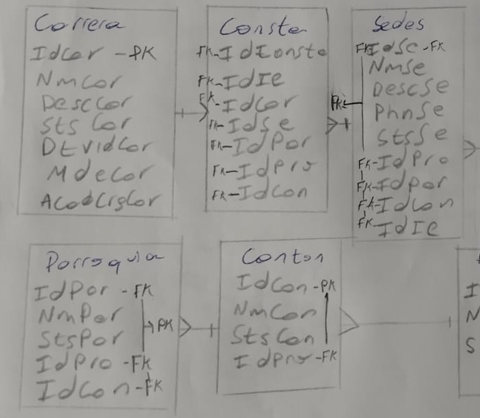 Carrera
IdCar - PK
NmCar
DescCar
Sts Car
DtVidCar
MdeCar
Consta
FK-IdConsta
FK-IdIe
FK-IdCar
FK-IdSe
FK-IdPar
FK-IdPro
FK-IdCan
Sedes
FK-IdSe-FK
NmSe
DescSe
PK
PhnSe
StsSe
FK-IdPro
FK-IdPar
FK-IdCan
FK-IdIe
Parroquia
IdPar - FK
NmPar
PK
StsPar
IdPro - FK
IdCan - FK
Canton
IdCan - PK
NmCan
StsCan
IdPro - FK
I
N
S